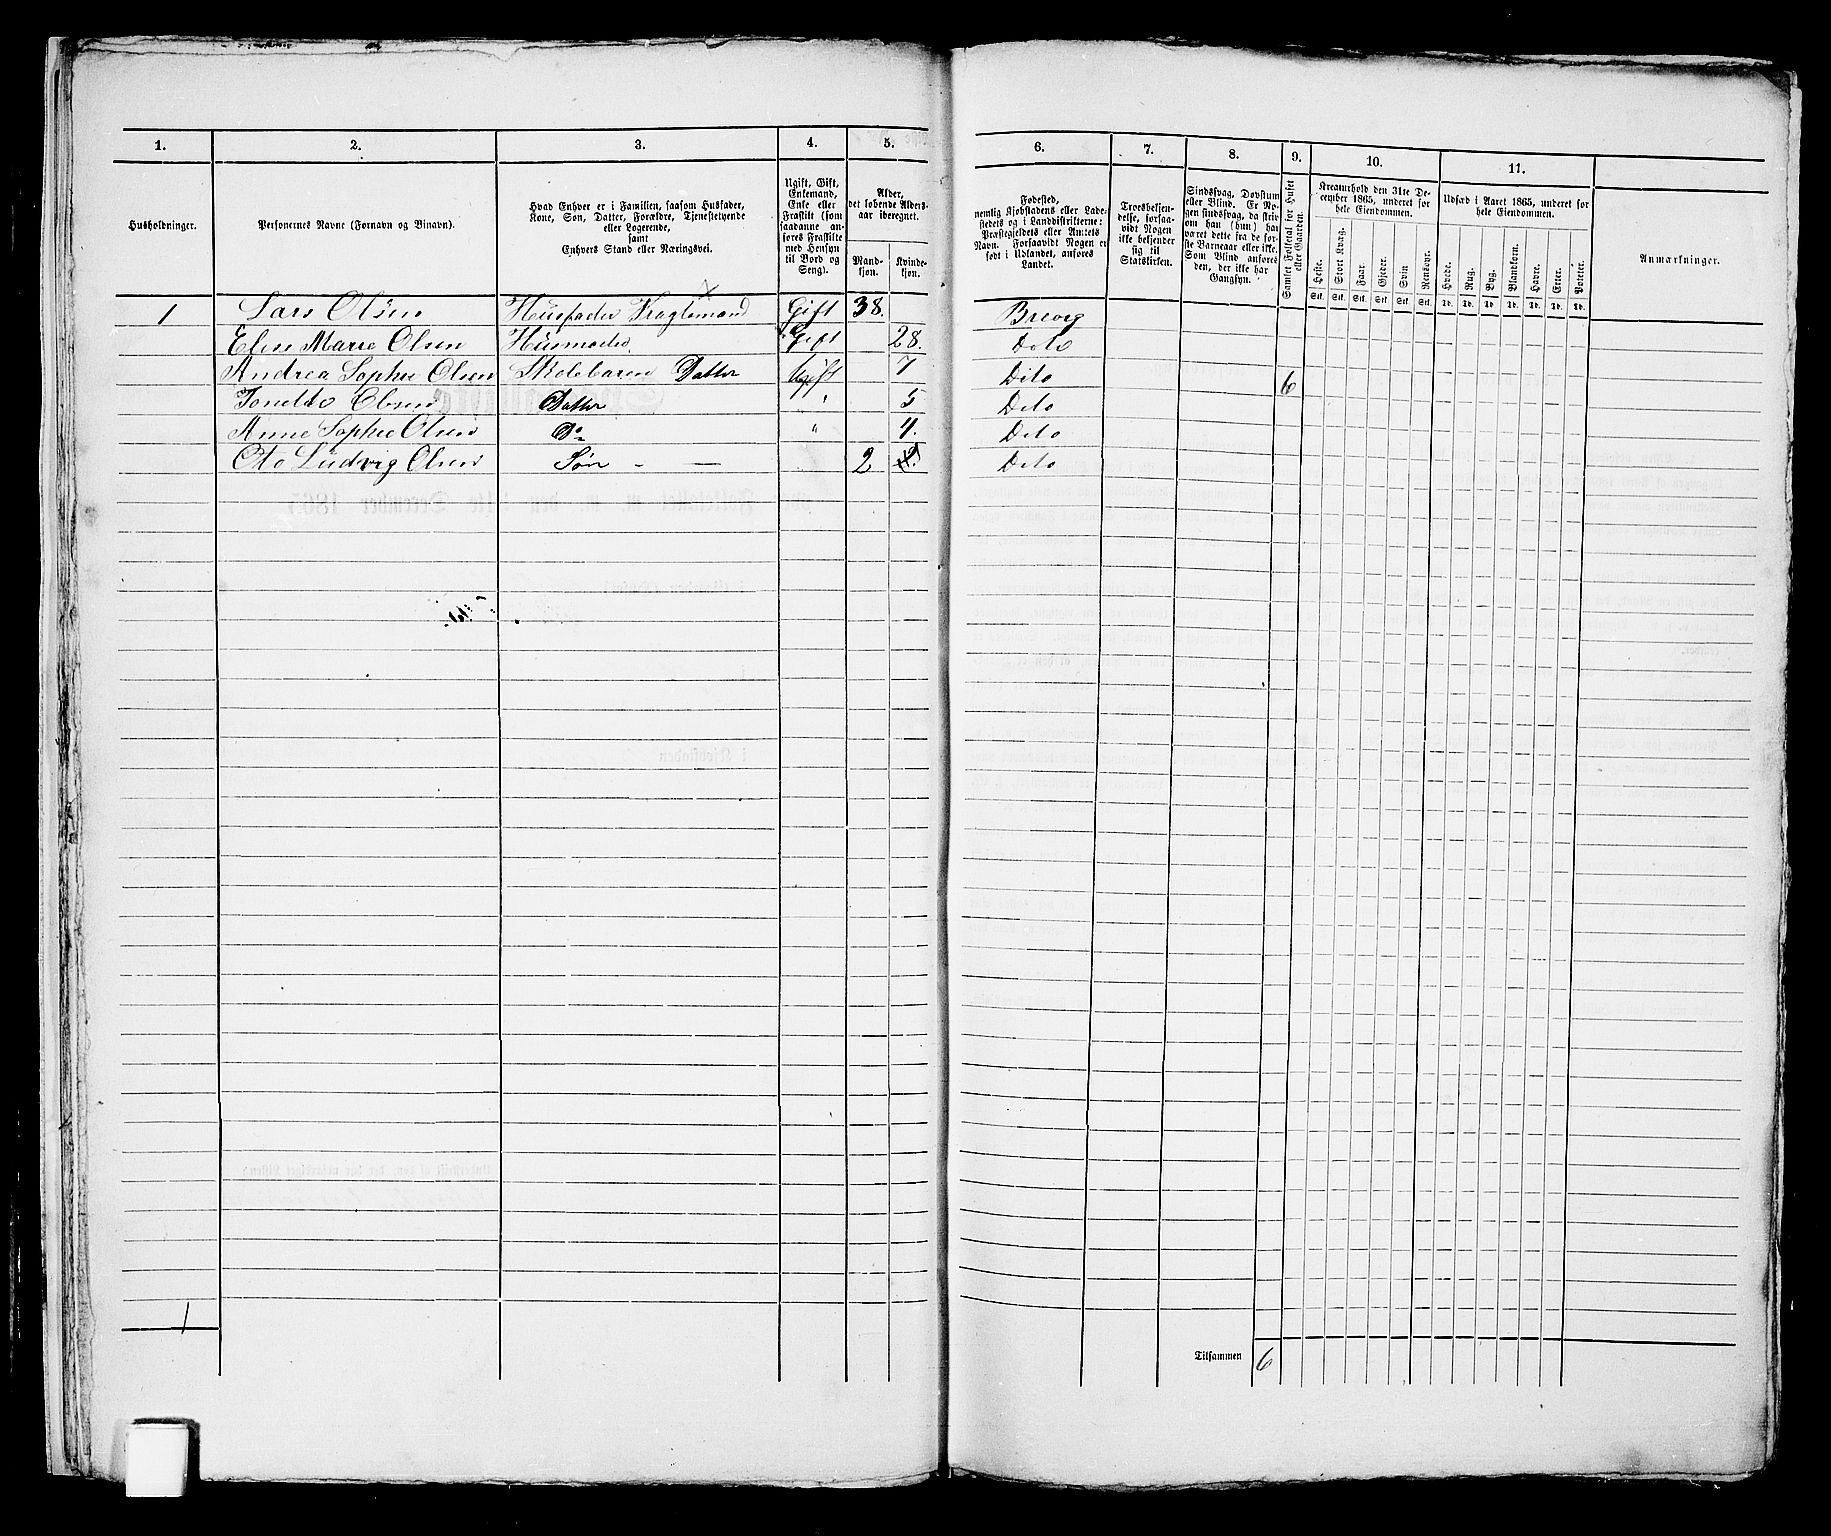 1. 2. 3. 4. 5. 6. 7. 8. 9. 10. 11.
Husholdninger.
Personernes Navne (Fornavn og Binavn).
Hvad Enhver er i Familien, saasom Husfader,
Kone, Søn, Datter, Forældre, Tjenestetyende
eller Logerende,
samt
Enhvers Stand eller Næringsvei.
Ugift, Gift,
Enkemand,
Enke eller
Fraskilt (som
saadanne an-
føres Fraskilte
med Hensyn
til Bord og
Seng).
Alder,
det løbende Alders-
aar iberegnet.
Mand-
kjøn.
Kvinde-
kjøn.
Fødested,
nemlig Kjøbstadens eller Lade-
stedets og i Landdistrikterne:
Præstegjeldets eller Amtets
Navn. Forsaavidt Nogen er
født i Udlandet, anføres
Landet.
Troesbekjen-
delse, forsaa-
vidt Nogen
ikke bekjender
sig til
Statskirken.
Sindssvag, Døvstum
eller Blind. Er No-
gen sindssvag, da skriv
om han (hun) har
været dette fra de før-
ste Barneaar eller ikke.
Som Blind anføres
den, der ikke har
Gangsyn.
Samlet Folketal for Huset
eller Gaarden.
Kreaturhold den 31te De-
cember 1865, underet for
hele Eiendommen.
Heste. Stort Kvæg. Faar. Gjeder. Svin Rensdyr.
Stk. Stk. Stk. Stk. Stk. Stk.
Udsæd i Aaret 1865, underet for
hele Eiendommen.
Hvede. Rug. Byg. Blandkorn. Havre. Erter. Poteter.
Td. Td. Td. Td. Td. Td. Td.
Anmærkninger.
1 Lars Olsen Husfader Gift 38. Brevig
Elen Marie Olsen Husmoder Gift 28. Dito
Andrea Sophie Olsen Skolebaren Datter Ugift 7 Dito 6
Olsen Datter " 5 Dito
Anne Sophie Olsen Do " 4. Dito
Oto Ludvig Olsen Søn - — 2 Dito
1
Tilsammen 6